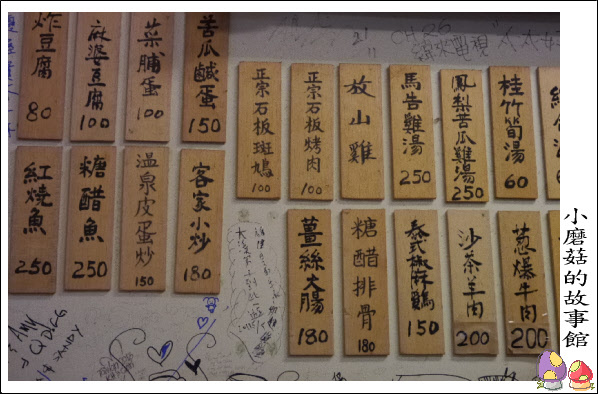 炸豆腐
80
麻婆豆腐
100
菜脯蛋
100
苦瓜鹹蛋
150
正宗石板斑鳩
100
正宗石板烤肉
100
放山雞
100
馬告雞湯
250
鳳梨苦瓜雞湯
250
桂竹筍湯
60
紅燒魚
250
糖醋魚
250
温泉皮蛋炒
150
客家小炒
180
薑絲大腸
180
糖醋排骨
180
泰式椒麻雞
150
沙茶羊肉
200
葱爆牛肉
200
CH26
小磨菇的故事館